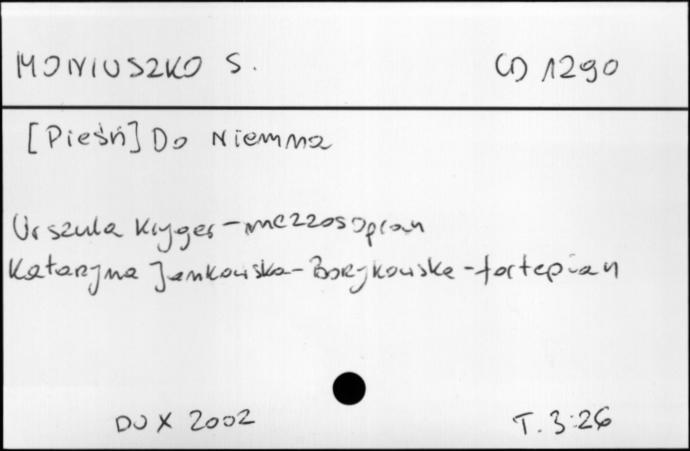 MONIUSZKO S. CD 1290
[Pieśń] Do Niemna
Urszula Kryger - mezzosopran
Katarzyna Jankowska - Borzykowska - fortepian
DUX 2002 T. 3:26